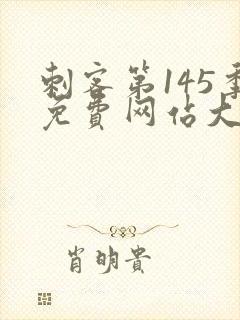 刺客第145季
免費网佔大
肖明貴